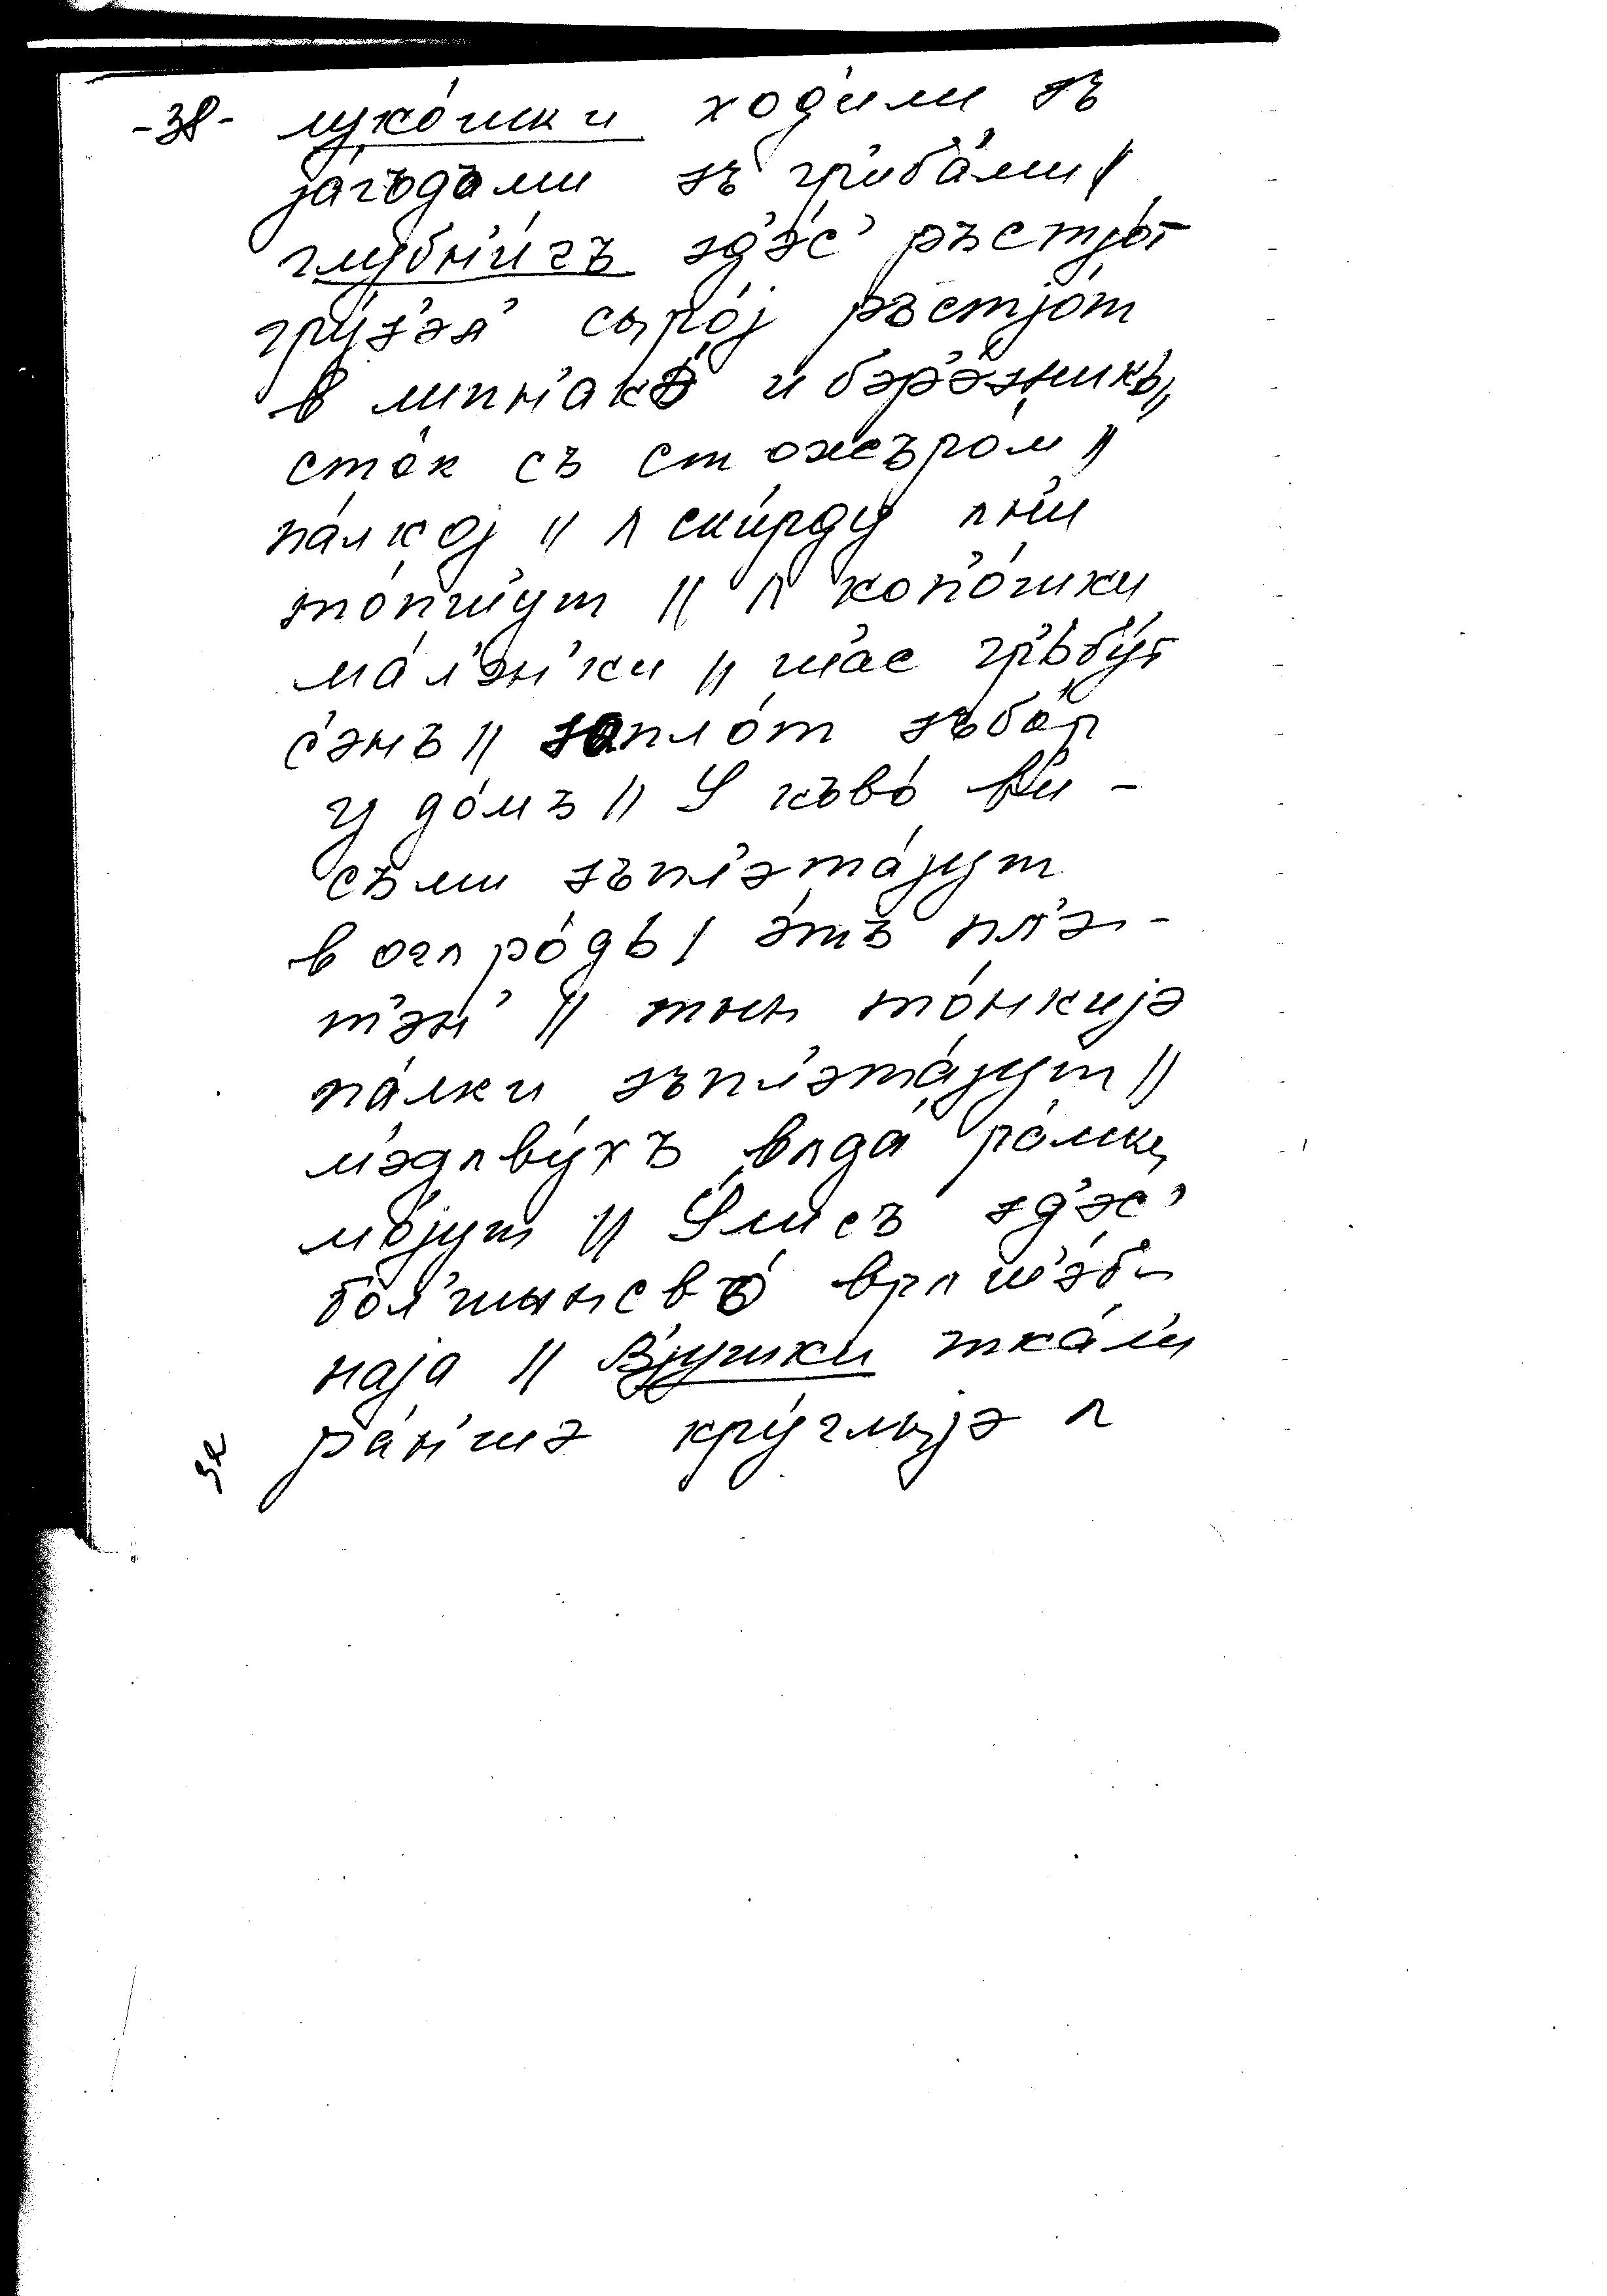 -38- луко́шки ходи́ли зъ
ја́гъдъми зъ гр'иба́ми ||
глубн'и́гъ зд'э́с' ръстјо́т
гру́з'эл' сыро́ј ръстјо́т
в липн'ак'э́ и бэр'э́зникъ ||
сто́к съ стожъро́м ||
па́лкој || ʌ ск'и́рду ʌн'и́
то́пч'ут || ʌ коп'о́шки
ма́л'эн'ки || ш'ас гр'ьбу́т
с'э́нъ || запло́т зъбо́р
у до́мъ || У ково́ ви́-
съми зъпл'эта́јут
в огʌро́дь | э́тъ пл'э-
т'э́н' || тын то́нкијэ
па́лки зъпл'эта́јут ||
м'эдʌву́хъ вʌда́ ра́мки
мо́јут || Улисъ зд'э́с'
бол'шынсвъ́ врʌш'э́б-
наја || Вју́шки тка́ли
ра́н'шэ кру́глыјэ ʌ
32